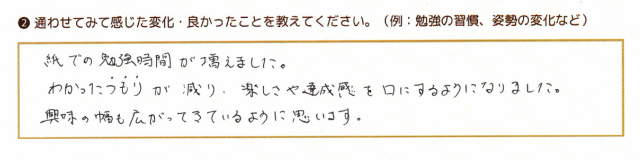 ❷ 通わせてみて感じた変化・良かったことを教えてください。（例：勉強の習慣、姿勢の変化など）
紙での勉強時間が増えました。
わかったつもりが減り、楽しさや達成感を口にするようになりました。
興味の幅も広がってきているように思います。